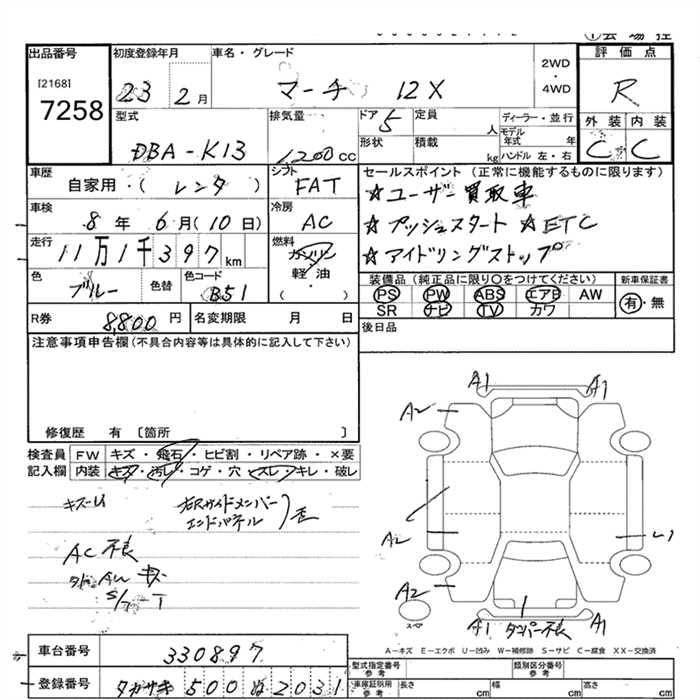 出品番号
[2168]
7258
初度登録年月
23 2月
車名・グレード
マーチ 12X
2WD
・
4WD
評価点
R
外装 内装
C C
型式
DBA-K13
排気量
1,200cc
ドア
5
定員
人
形状
積載
kg
ディーラー・並行
モデル年式 年
ハンドル 左・右
車歴
自家用・(レンタ)
シフト
FAT
車検
8年 6月(10日)
冷房
AC
走行
11万1千397km
燃料
ガソリン
軽油
( ・ )
色
ブルー
色替
色コード
B51
セールスポイント (正常に機能するものに限ります)
☆ユーザー買取車
☆プッシュスタート ☆ETC
☆アイドリングストップ
装備品(純正品に限り○をつけてください)
新車保証書
PS PW ABS エアB AW
SR ナビ TV カワ
有・無
R券
8,800円
名変期限 月 日
後日品
注意事項申告欄(不具合内容等は具体的に記入して下さい)
修復歴 有 [箇所 ]
検査員
記入欄
FW キズ・飛石・ヒビ割・リペア跡・×要
内装 キズ・汚レ・コゲ・穴・スレ・キレ・破レ
右Rサイドメンバー
エンドパネル
AC不良
A1 A1
A2
A2
A2
A1 A1
スペア
A-キズ E-エクボ U-凹み W-補修跡 S-サビ C-腐食 XX-交換済
車台番号
330897
登録番号
タカサキ 500 ぬ 2031
型式指定番号
参考
類別区分番号
参考
車庫証明用
参考
長さ cm
幅 cm
高さ cm